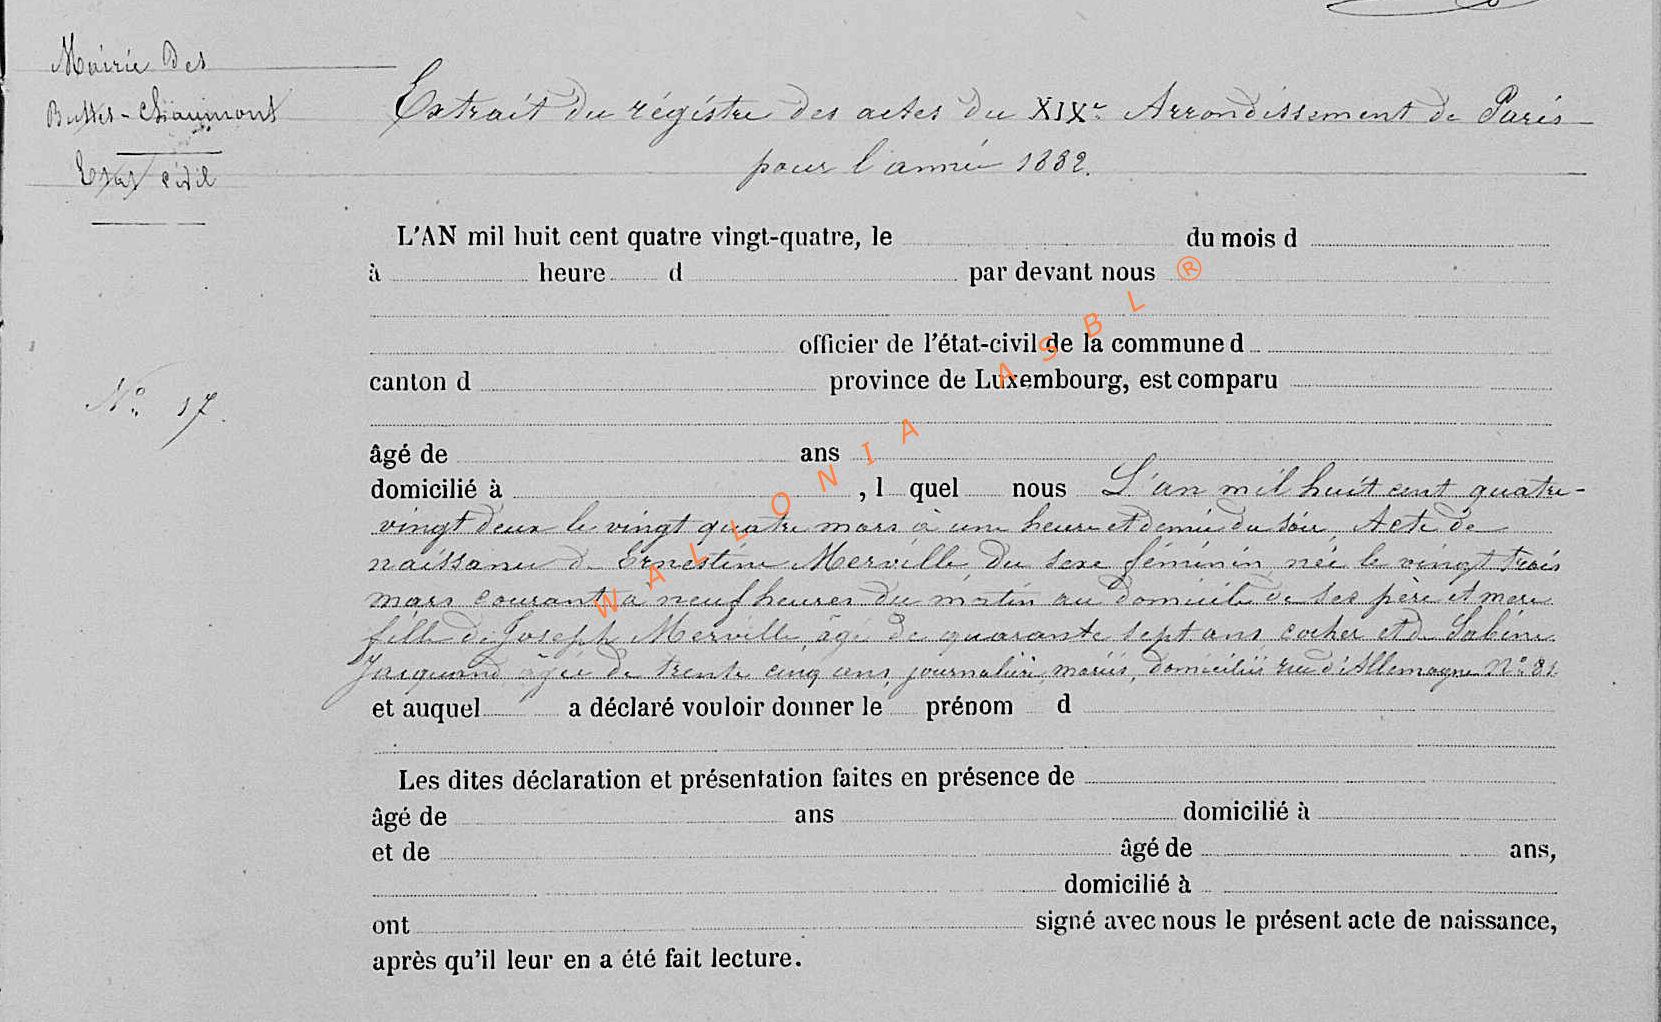 Mairie des
Buttes-Chaumont
Etat civil
Extrait du régistre des actes du XIXe Arrondissement de Paris
pour l'année 1882.
L'AN mil huit cent quatre vingt-quatre, le du mois d
à heure d par devant nous
officier de l'état-civil de la commune d
canton d province de Luxembourg, est comparu
No 17.
âgé de ans
domicilié à , l quel nous L'an mil huit cent quatre-
vingt deux le vingt quatre mars à une heure et demie du soir, Acte de
naissance de Ernestine Merville, du sexe féminin, née le vingt trois
mars courant à neuf heures du matin au domicile de ses père et mère
fille de Joseph Merville, âgé de quarante sept ans, cocher et de Sabine
Jacquand âgée de trente cinq ans, journalière, mariés, domiciliés rue d'Allemagne No 81.
et auquel a déclaré vouloir donner le prénom d
Les dites déclaration et présentation faites en présence de
âgé de ans domicilié à
et de âgé de ans,
domicilié à
ont signé avec nous le présent acte de naissance,
après qu'il leur en a été fait lecture.
WALLONIA ASBL ®